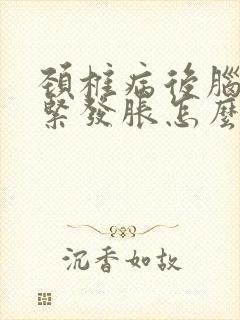 頸椎病後腦
緊發脹怎麼
沉香如故